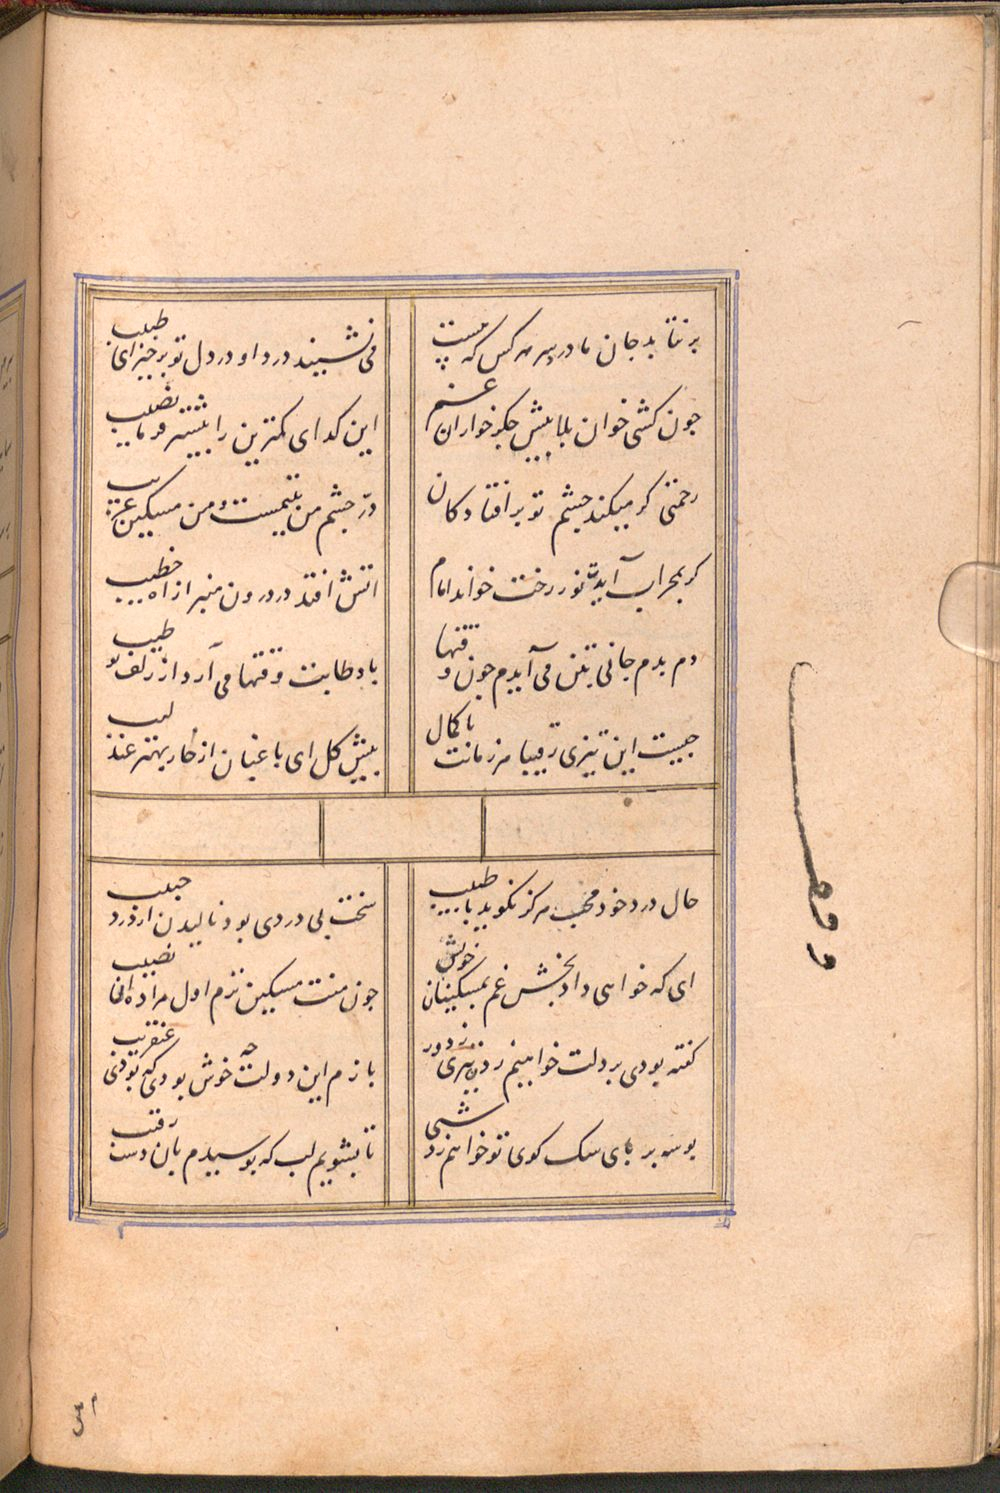 بر نتابد جان ما در پر هر کس که هست
می نشیند درد او در دل تو برخیز ای طبیب
چون کشی خوان بلا پیش جکر خواران غم
این کدای کمترین را بیشتر فرما نصیب
رحمتی کر میکند چشم تو بر افتادکان
درّ چشم من یتیمست و من مسکین غریب
کر بمحراب آید نور رخت خواند امام
اتش افتد در درون منبر از اه خطیب
دم بدم جانی بتن می آیدم چون وقتها
باد طابت وقتها می آرد از زلف تو طیب
چیست این تیزی رقیبا هر زمانت با کمال
پیش کل ای باغبان از خار بهتر عندلیب
حال درد خود محب هرکز نکوید با طبیب
سخت بی دردی بود نالیدن از درد حبیب
ای که خواهی داد بخش غم بمسکینان خویش
چون منت مسکین ترم اول مرا ده ان نصیب
کفته بودی بر دلت خواهیم زدن تیری ز دور
بازم این دولت چه خوش بودی که بودی عنقریب
بوسه بر پای سک کوی تو خواهم زد شبی
تا بشویم لب که بوسیدم بان دست رقیب